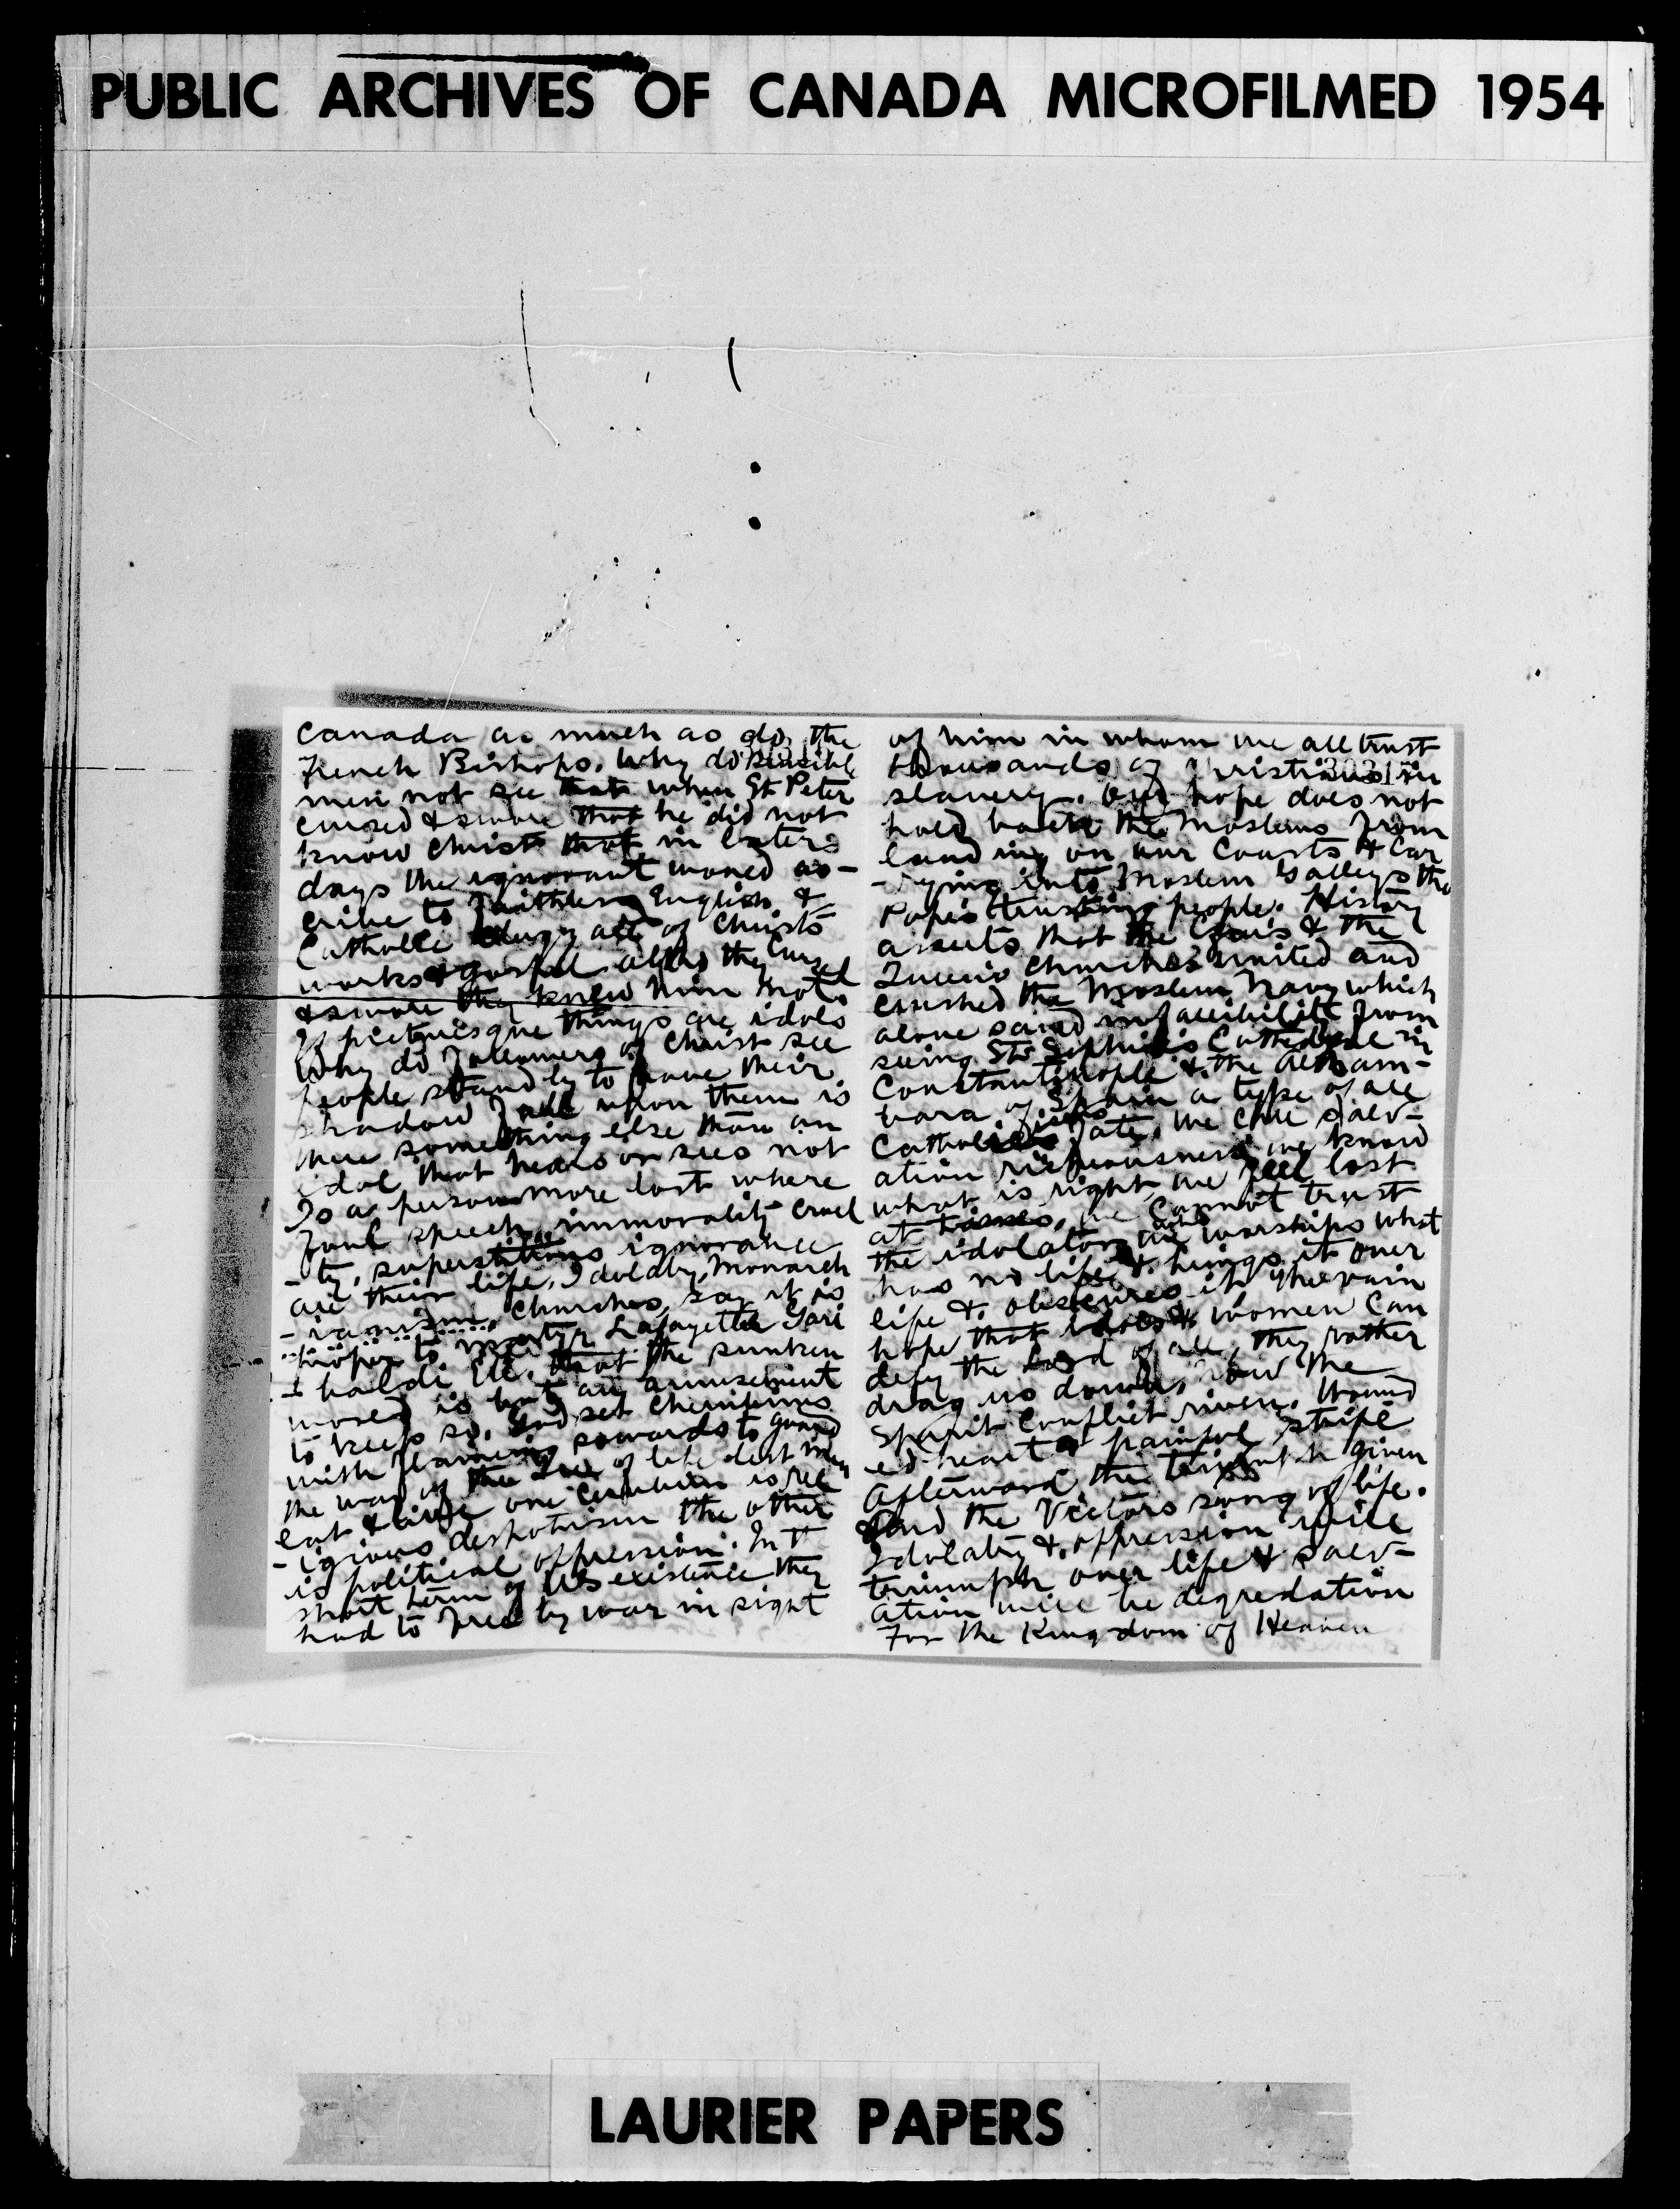 PUBLIC ARCHIVES OF CANADA MICROFILMED 1954
Canada as much as do the
French Bishops. Why do sensible
men not see that when St Peter
cursed & swore that he did not
know Christ that in later
days the ignorant moved as-
cribe to faithless English &
Catholic clergy all of Christs
works & gospel altho they curse
& swore they knew him not.
If picturesque things are idols
Why do followers of Christ see
people stand by to have their
shadow fall upon them is
there something else than an
idol that hears or sees not
Is a person more lost where
foul speech, immorality cruel
-ty, superstitious ignorance
are their life. Idolatry, Monarch
-ianism, Churches, say it is
proper to martyr Lafayette Gari
-baldi etc. that the sunken
moved is but an amusement
to keep so. God set Cherubims
with flaming swords to guard
the way of the tree of life lest men
eat & live one Cherubim is rel
-igious despotism the other
is political oppression. In the
short term of US existence they
had to free by war in sight
of him in whom we all trust
thousands of Christians in
slavery. Our hope does not
hold back the Moslems from
landing on our Coasts & Car
-rying into Moslem Galleys the
Popes trusting people. History
asserts that the & the
Churches united and
crushed the Moslem Navy which
alone saved infallibility from
seeing St Sophia's Cathedral in
Constantinople & the Alham-
bara of Spain a type of all
Catholic fate. We call salv-
ation righteousness, we know
what is right we feel lost
at times, we Cannot trust
the idolator who worships what
has no life & brings it over
life & obscures it. The vain
hope that & women can
defy the Lord of all, they rather
drag us down,
Spirit Conflict riven. Wound
ed heart painful strife
Afterward the triumph given
And the Victors song of life.
Idolatry & oppression will
triumph over life & salv-
ation will be degredation
For the Kingdom of Heaven
LAURIER PAPERS